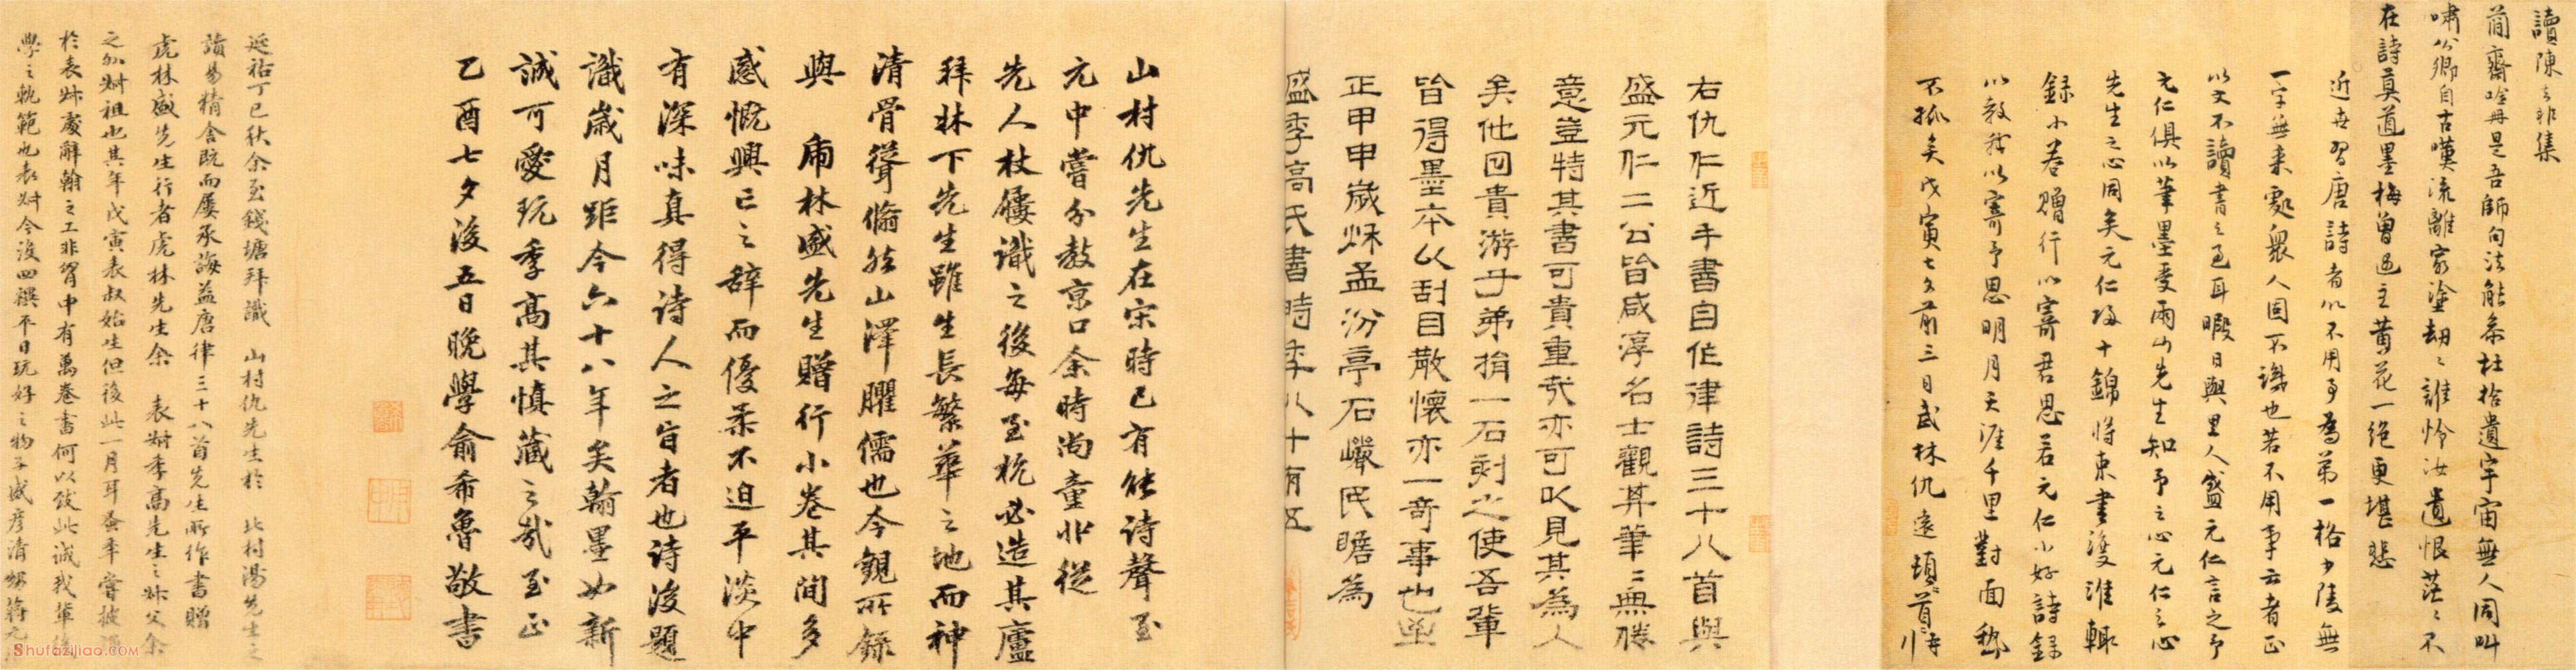 讀陳去非集
簡齋吟冊是吾師句法能參杜拾遺宇宙無人同叫
嘯公卿自古嘆流離家塗劫〻誰怜汝遺恨茫〻不
在詩莫道墨梅曾遇主黃花一絕更堪悲
近世習唐詩者以不用事為第一格少陵無
一字無來處衆人固不識也若不用事云者正
以文不讀書之過耳暇日與里人盛元仁言之予
元仁俱以筆墨受兩山先生知予之心元仁之心
先生之心同矣元仁將東書渡淮輒
錄小卷贈行以寄君思若元仁小好詩錄
以教我以寄予思明月天涯千里對面
不孤矣戊寅七夕前三日武林仇遠頓首
右仇仁近手書自作律詩三十八首與
盛元仁二公皆咸淳名士觀其筆〻無俗
意豈特其書可貴重哉亦可以見其為人
矣他日貴游子弟捐一石刻之使吾輩
皆得墨本以刮目散懷亦一奇事也至
正甲申歲秋孟汾亭石巖民瞻為
盛季高氏書時年八十有五
山村仇先生在宋時已有能詩聲至
元中嘗分教京口余時尚童丱從
先人杖屨識之後每至杭必造其廬
拜牀下先生雖生長繁華之地而神
清骨聳翛然山澤臞儒也今觀所錄
與 虎林盛先生贈行小卷其間多
感慨興亡之辞而優柔不迫平淡中
有深味真得詩人之旨者也詩後題
識歲月距今六十八年矣翰墨如新
誠可愛玩季高其慎藏之哉至正
乙酉七夕後五日晚學俞希魯敬書
延祐丁巳秋余至錢塘拜識 山村仇先生於 北村湯先生之
讀易精舍既而屢承誨益唐律三十八首先生所作書贈
虎林盛先生行者虎林先生余 表叔季高先生之叔父余
之外叔祖也其年戊寅表叔始生但後此一月耳蚤年嘗披
於表叔處辭翰之工非胷中有萬卷書何以致此誠我輩後
學之軌範也表叔今後四禩平日玩好之物子盛彥清甥蔣元
Shufaziliao.com